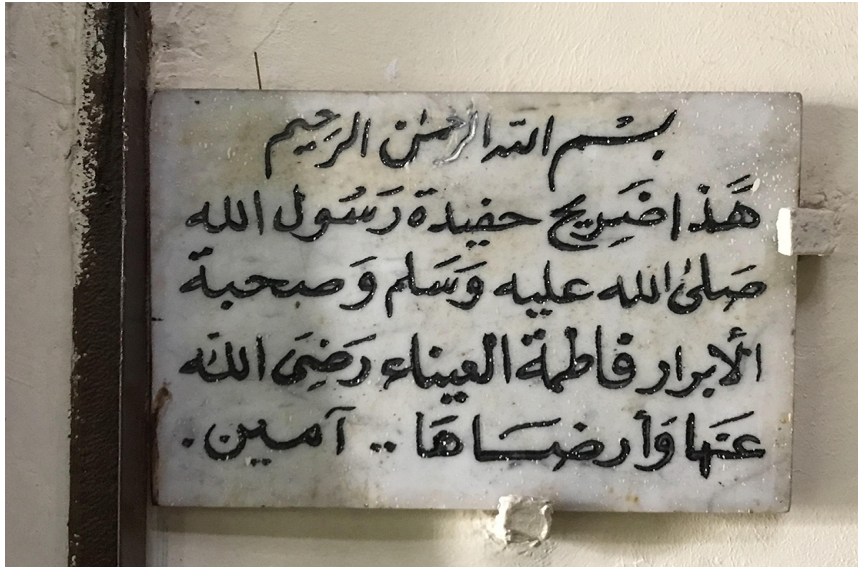 بسم الله الرحمن الرحيم
هَذا ضَرِيح حفيدة رَسُول الله
صَلىٰ الله عليه وَسَلم وَصحبة
الأبرار فاطمة العيناء رَضِىَ اللّه
عَنها وَأرضَاهَا .. آمين .